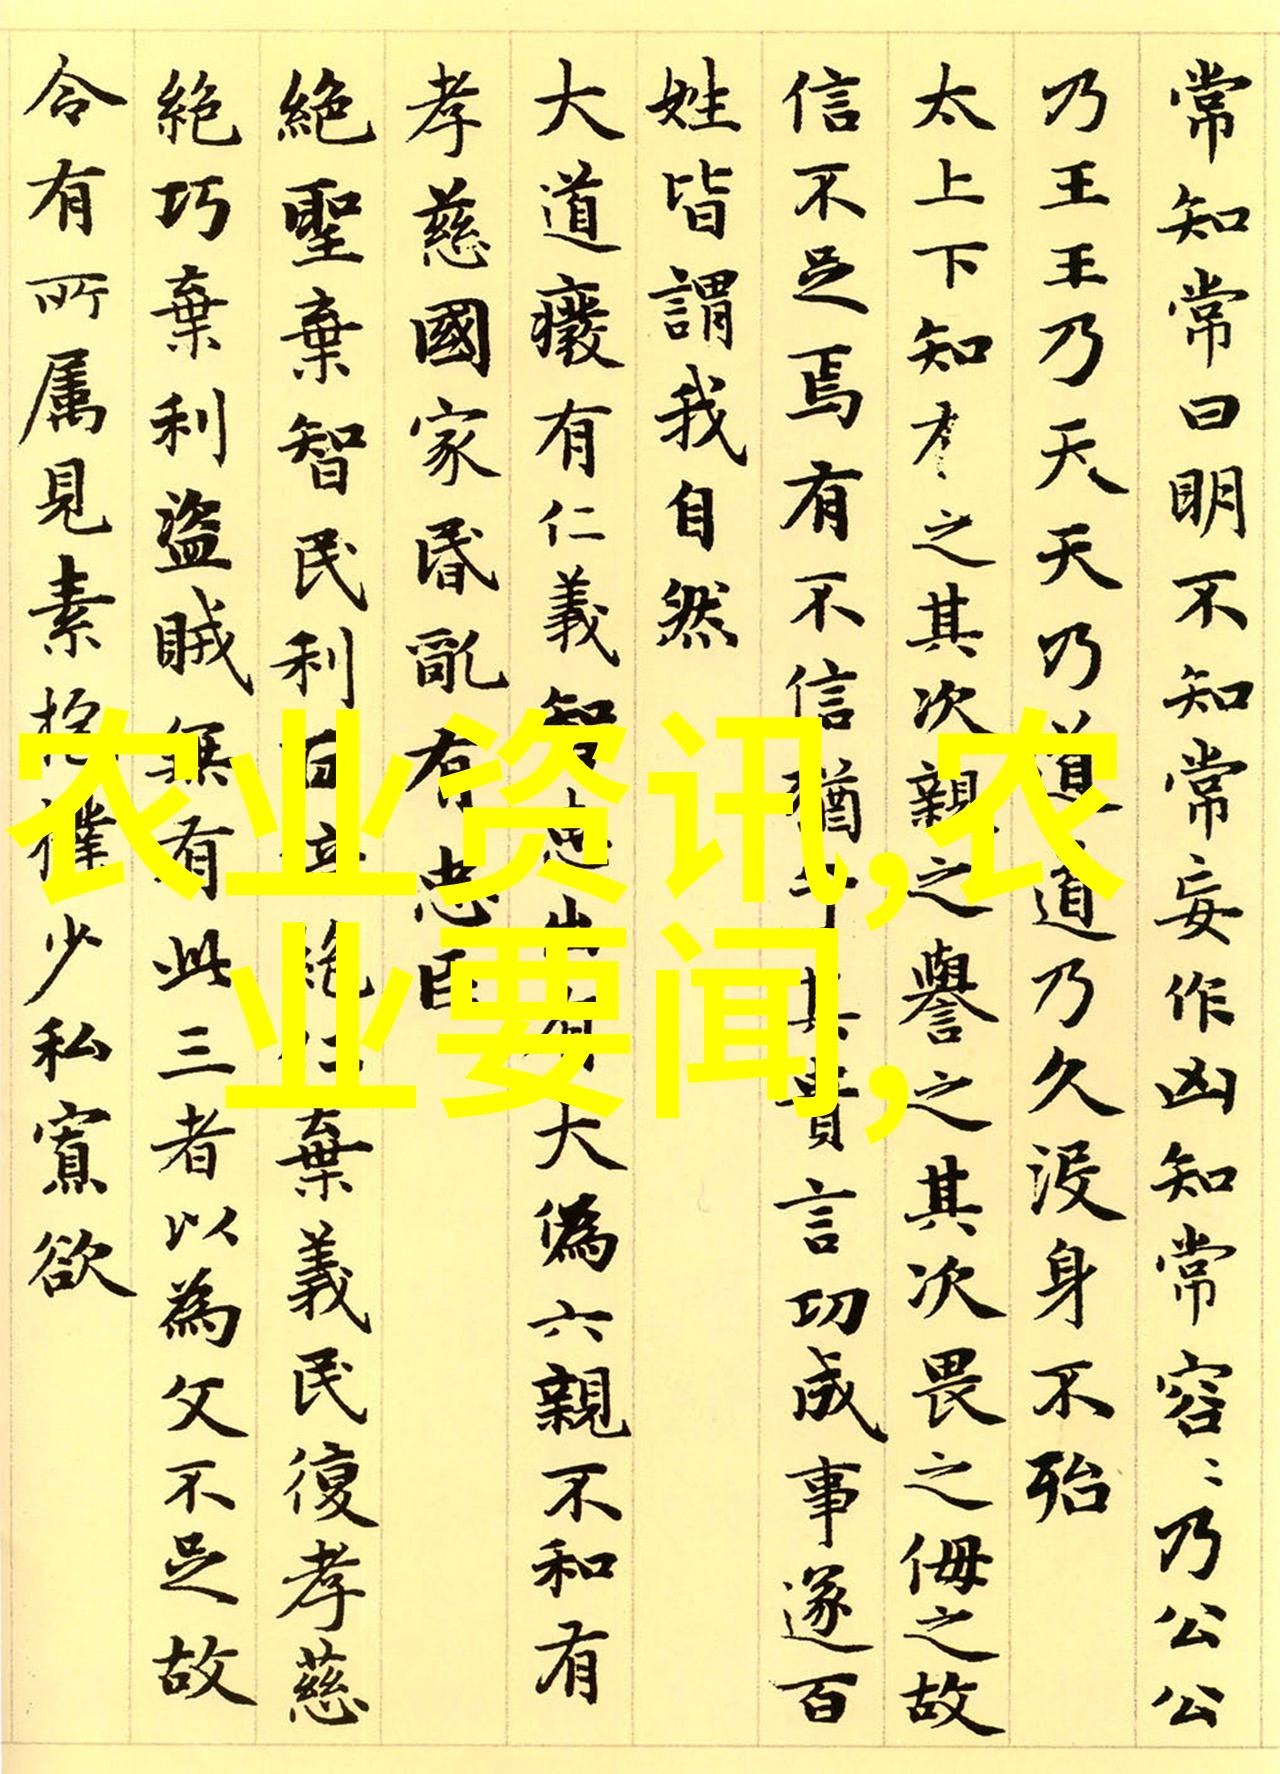 常知常曰明不知常妄作凶知常容〻乃公公
乃王王乃天天乃道道乃久没身不殆
太上下知有之其次親之譽之其次畏之侮之故
信不足焉有不信猶乎其貴言功成事遂百
姓皆謂我自然
大道癈有仁義智惠出有大偽六親不和有
孝慈國家昏亂有忠臣
絶聖棄智民利百倍絶仁棄義民復孝慈
絶巧棄利盜賊無有此三者以為文不足故
令有所属見素抱樸少私寡欲
农业资讯,农
业要闻,